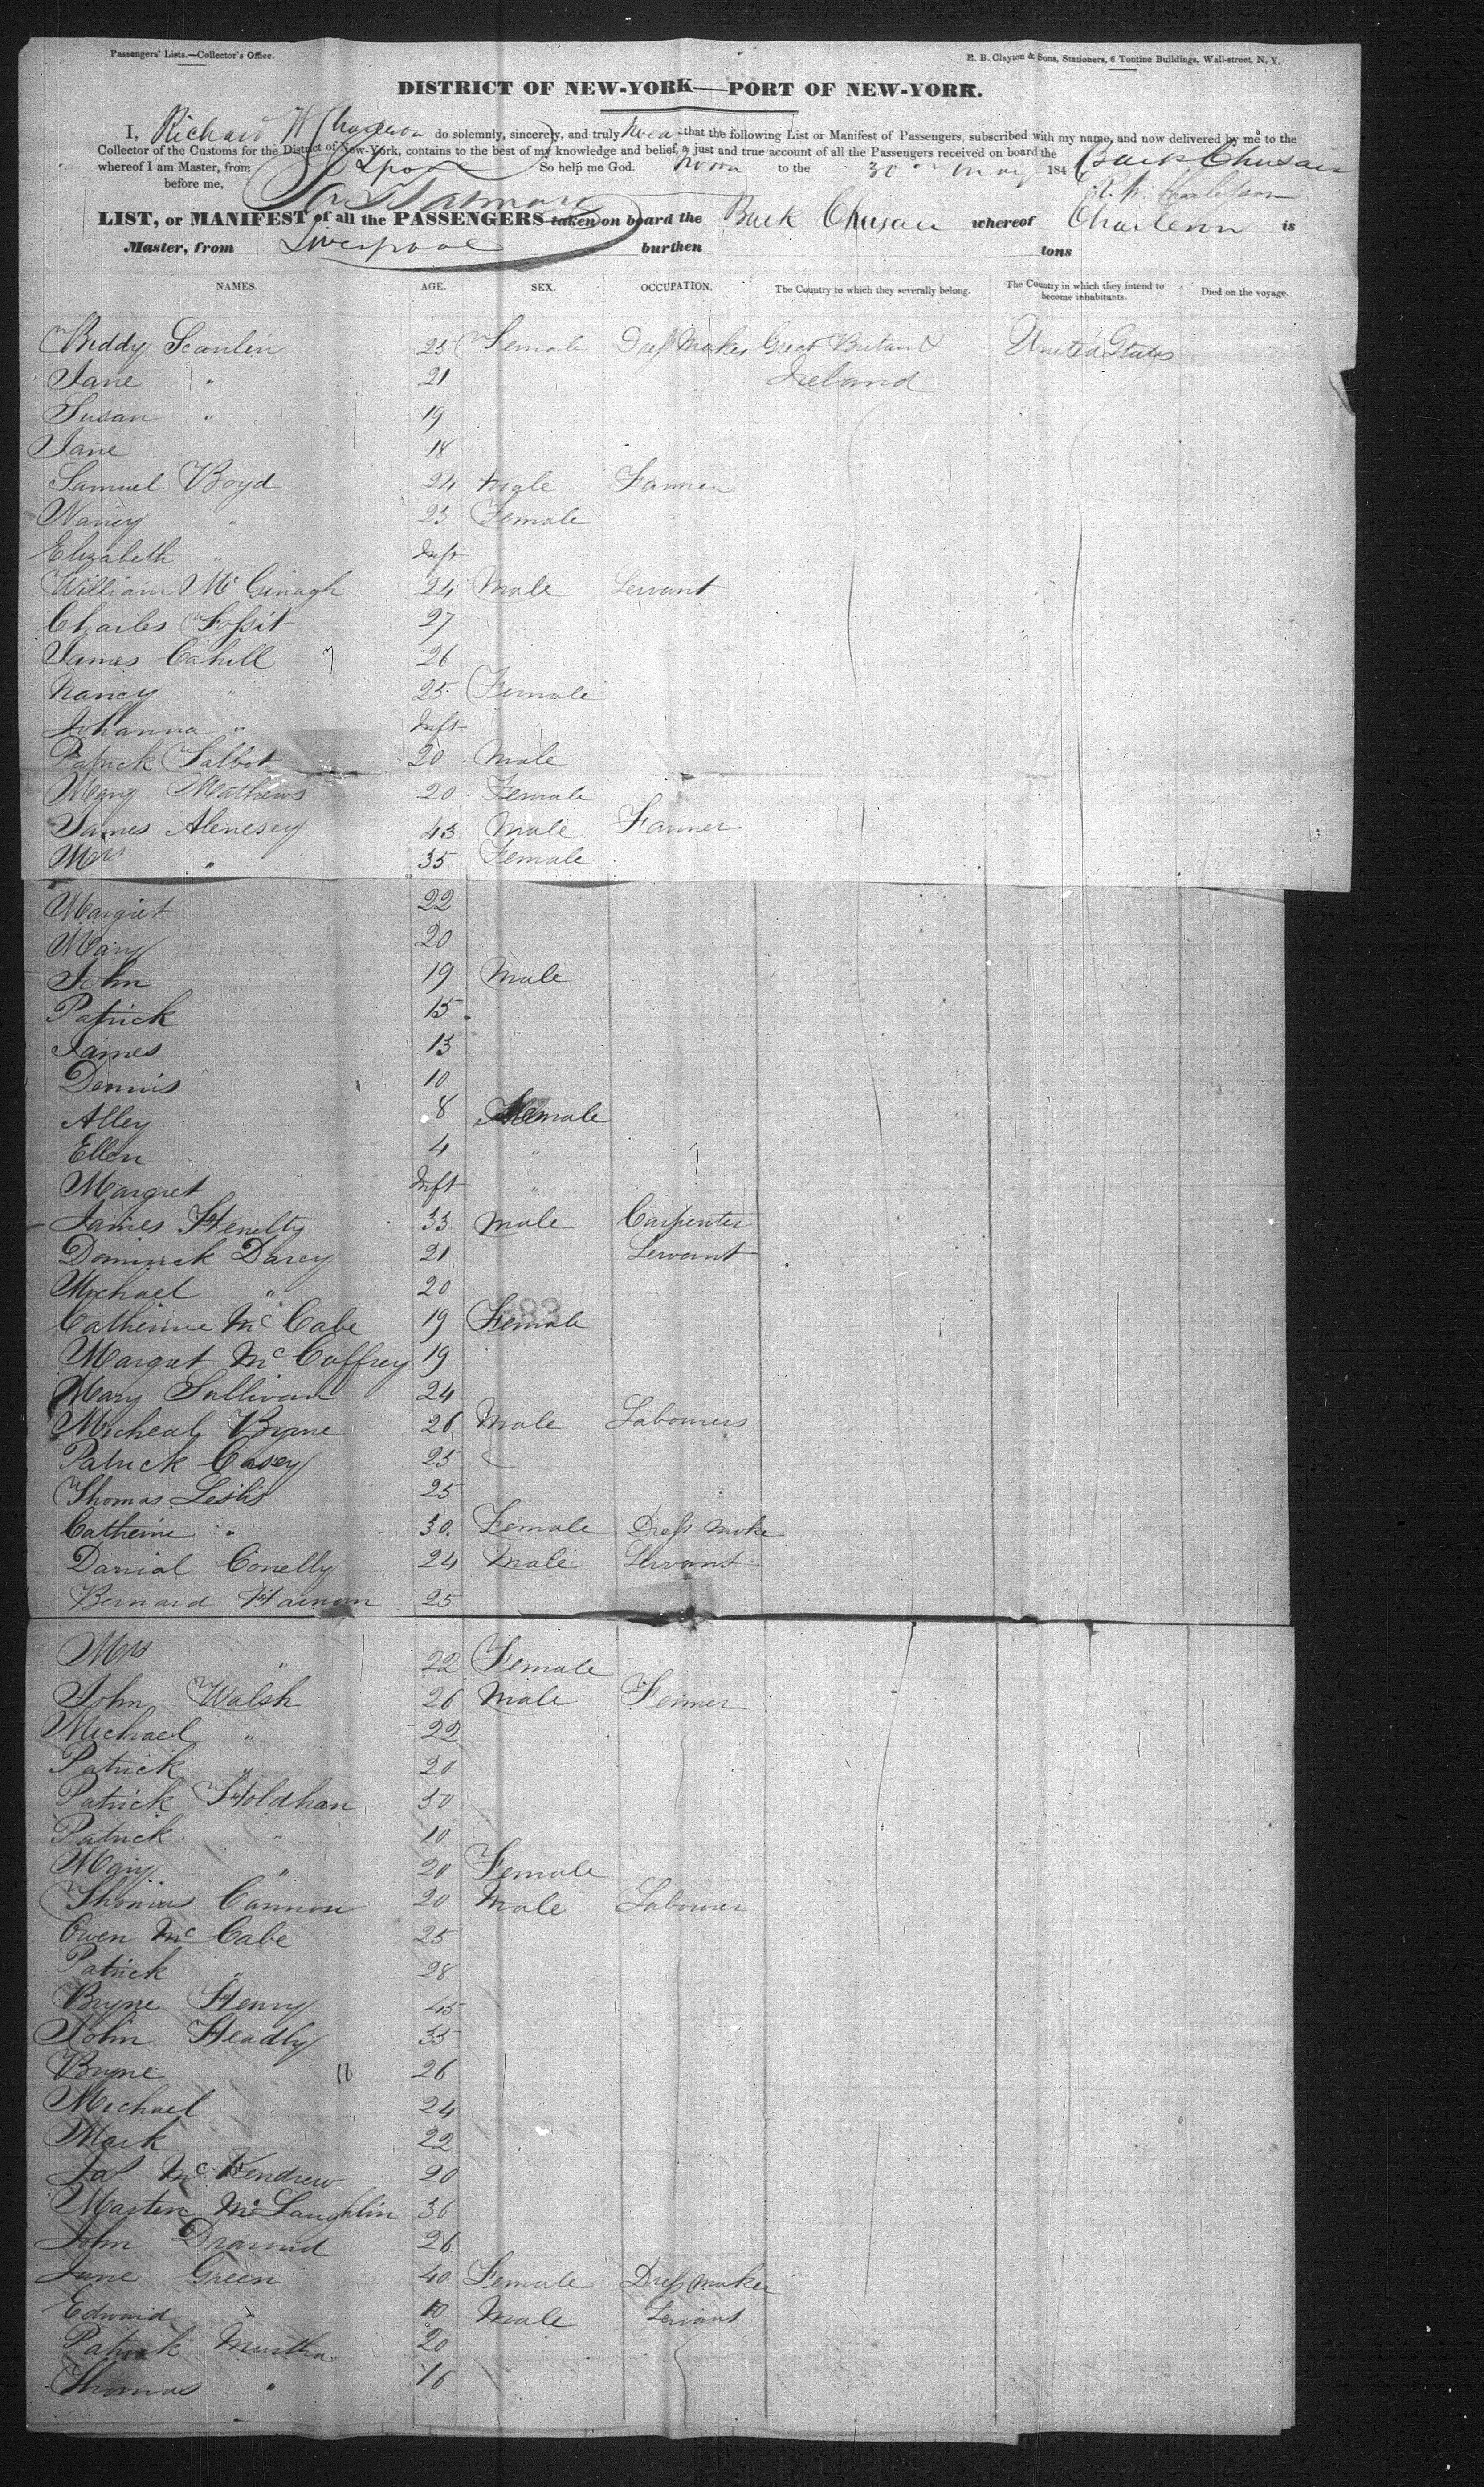 Passengers' Lists.—Collector's Office.
E. B. Clayton & Sons, Stationers, 6 Tontine Buildings, Wall-street, N. Y.
DISTRICT OF NEW-YORK—PORT OF NEW-YORK.
I, Richard W do solemnly, sincerely, and truly swear that the following List or Manifest of Passengers, subscribed with my name, and now delivered by me to the
Collector of the Customs for the District of New-York, contains to the best of my knowledge and belief, a just and true account of all the Passengers received on board the Bark Chusan
whereof I am Master, from Lpool So help me God. to the 30 May 184
before me,
LIST, or MANIFEST of all the PASSENGERS taken on board the Bark Chusan whereof is
Master, from Liverpool burthen tons
NAMES. AGE. SEX. OCCUPATION. The Country to which they severally belong. The Country in which they intend to become inhabitants. Died on the voyage.
Biddy Scanlin 25 Female Dress Maker Great Britain & United States
Jane " 21 Ireland
Susan " 19
Jane 18
Samuel Boyd 24 Male Farmer
Nancy " 23 Female
Elizabeth " Inft
William McGinagh 24 Male Servant
Charles Fossit 27
James Cahill 26
Nancy " 25 Female
Johanna " Inft
Patrick Talbot 20 Male
Mary Mathews 20 Female
James 43 Male Farmer
Mrs " 35 Female
Margret 22
Mary 20
John 19 Male
Patrick 15
James 13
Dennis 10
Alley 8 Female
Ellen 4 "
Margret Inft "
James 33 Male Carpenter
Dominick Darcy 21 Servant
Michael " 20
Catherine McCabe 19 Female
Margret McCaffrey 19
Mary Sullivan 24
Micheal Byrne 26 Male Labourers
Patrick Casey 25
Thomas 25
Catherine " 30 Female Dress Make
Danial Conelly 24 Male Servant
Bernard 25
Mrs " 22 Female
John Walsh 26 Male Farmer
Michael " 22
Patrick " 20
Patrick Holdhan 50
Patrick " 10
Mary " 20 Female
Thomas Cannon 20 Male Labourer
Owen McCabe 25
Patrick " 28
Bryne Henry 45
John Headly 35
Bryne 26
Michael 24
Mark 22
Jas McKendrew 20
Marten McLaughlin 36
John 26
Jane Green 40 Female Dress maker
Edward " 10 Male Servant
Patrick Murtha 20
Thomas " 16